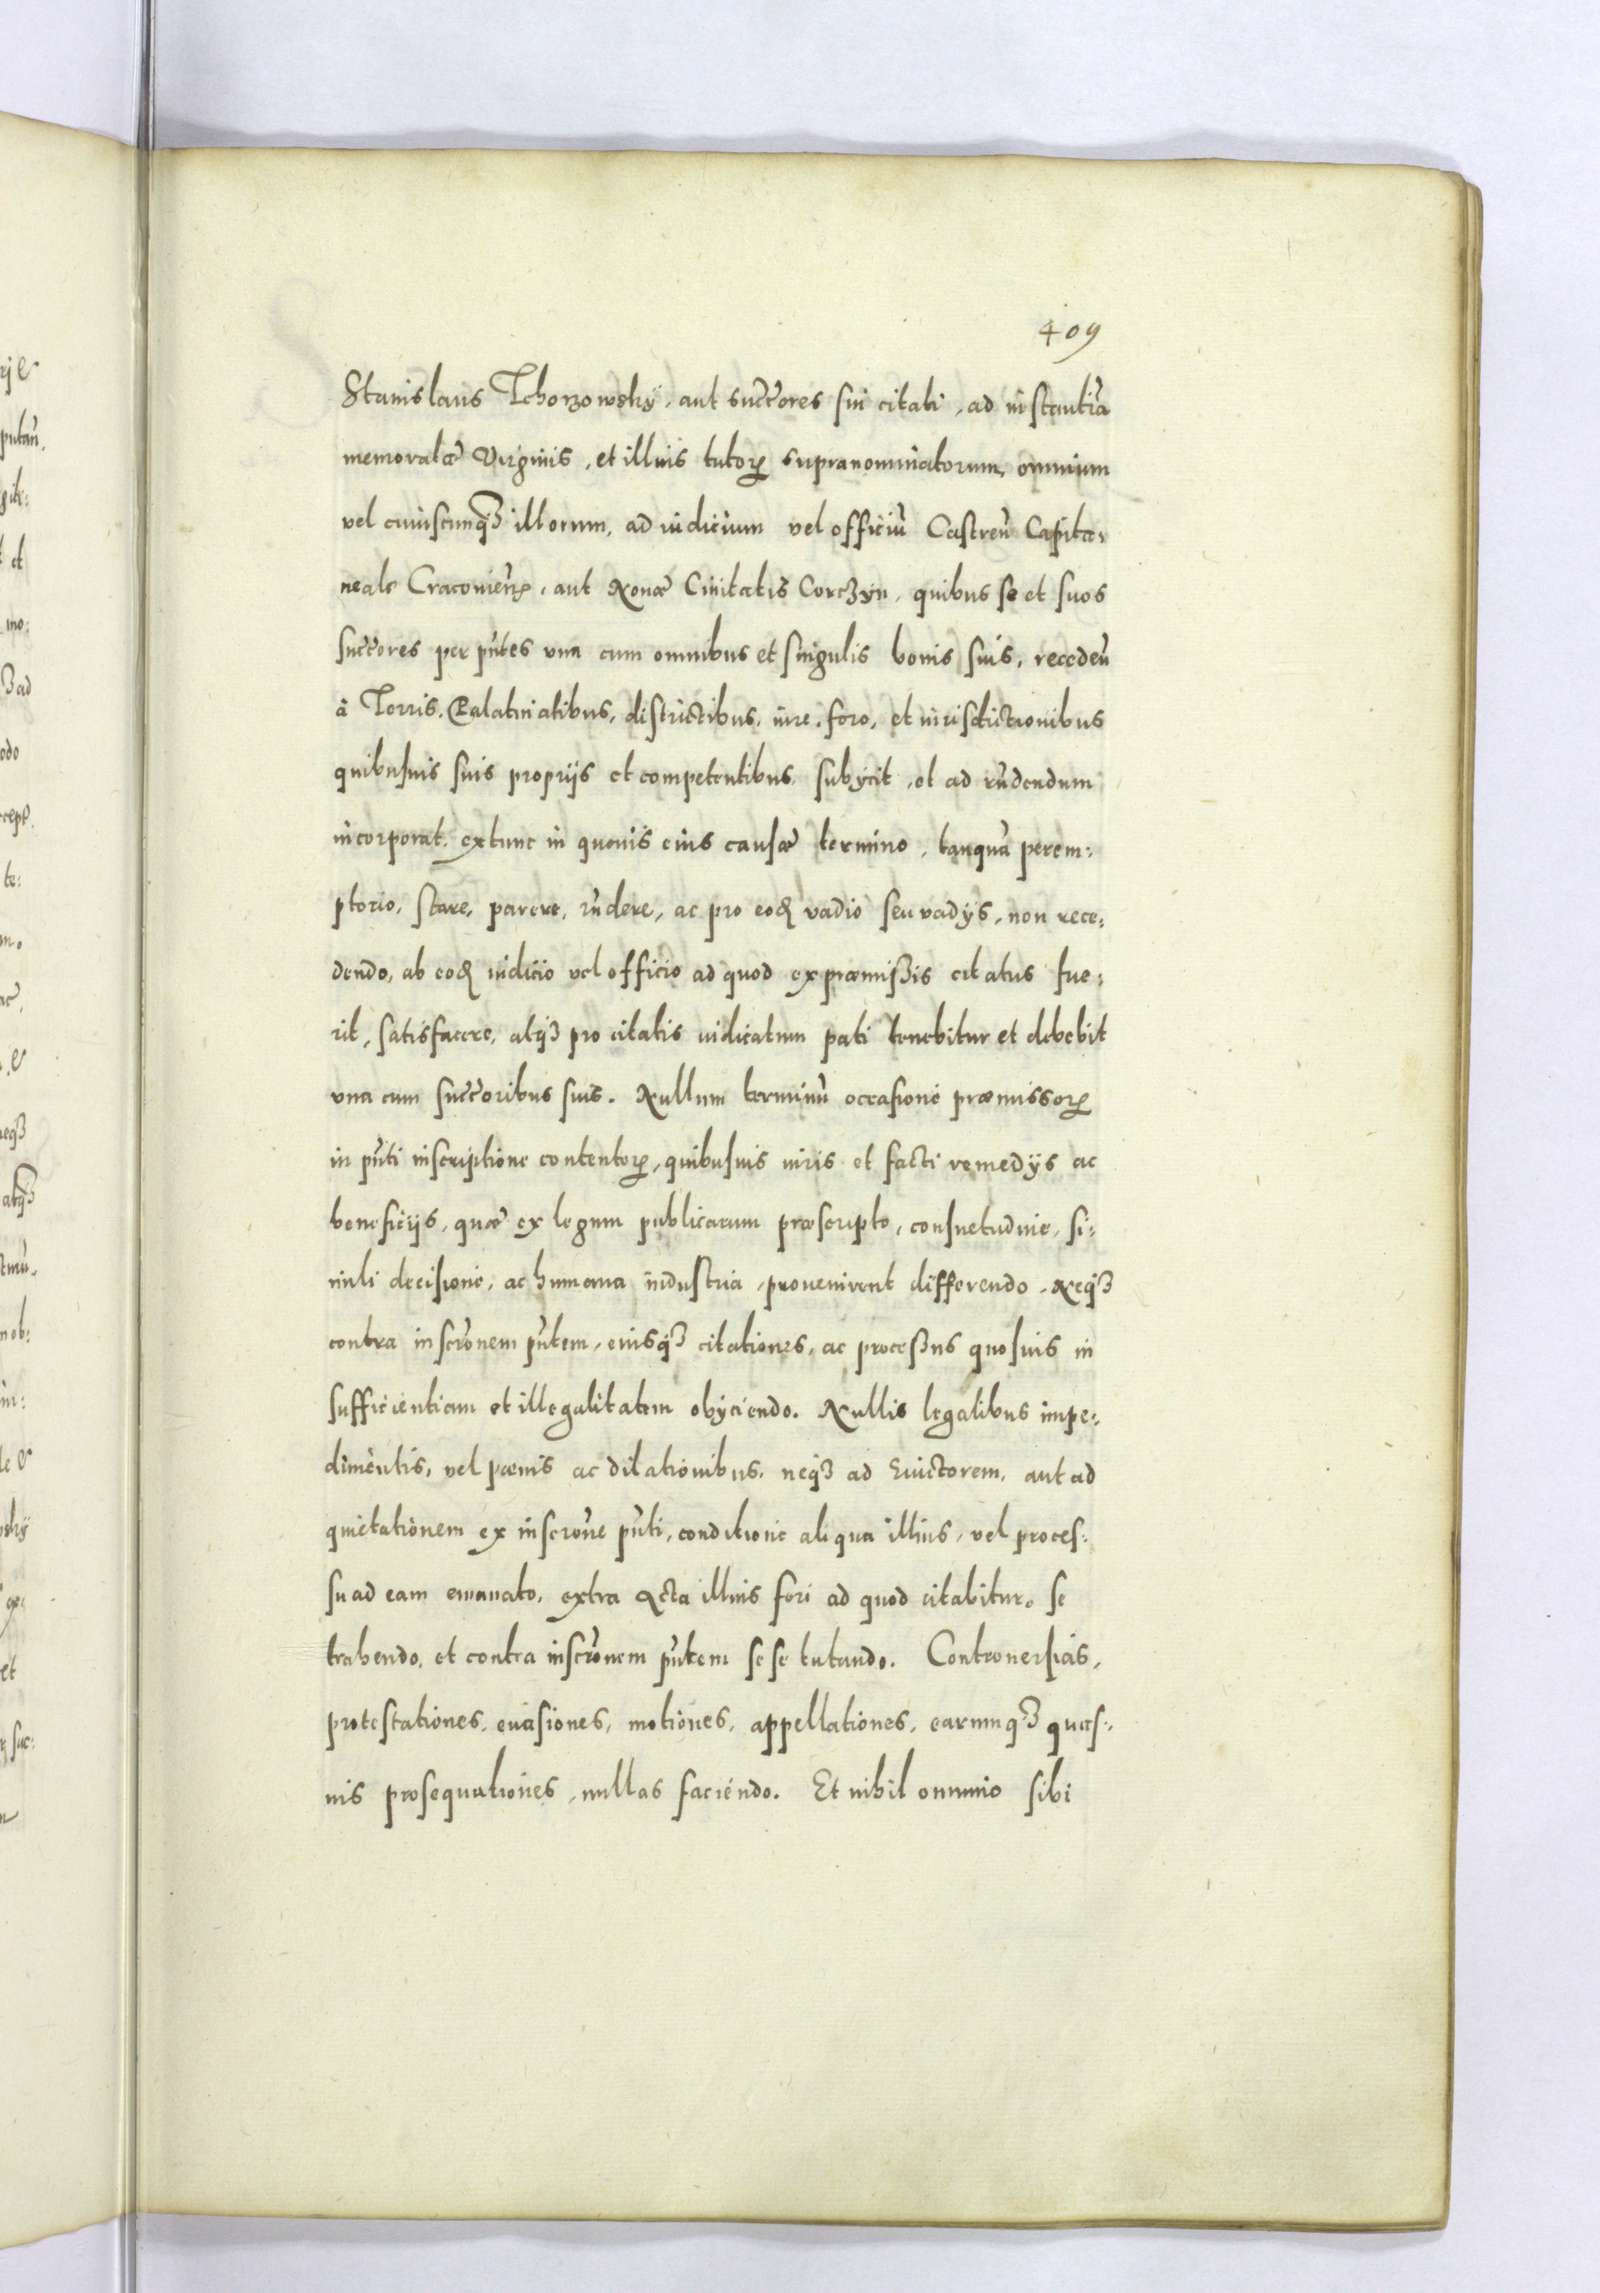 409
Stanislaus Tchorzowsky, aut succ̃ores sui citati, ad instantia͂
memoratæ Virginis, et illius tutorꝝ supranominatorum, omnium
vel cuiuscunqꝫ illorum, ad iudicium vel officiũ Castreñ Capita:
neale Cracovieñ, aut Nouæ Ciuitatis Corczyn, quibus se et suos
succ̃ores per pñtes vna cum omnibus et singulis bonis suis, recedeñ
à Terris, Palatinatibus, districtibus, iure, foro, et iurisdictionibus
quibusuis suis proprijs et competentibus, subÿcit, et ad rñdendum
incorporat. extunc in quouis eius causæ termino, tanquã perem:
ptorio, stare, parere, rñdere, ac pro eoď vadio seu vadÿs, non rece:
dendo, ab eoď iudicio vel officio ad quod ex præmißis citatus fue:
rit, satisfacere, atqꝫ pro citatis iudicatum pati tenebitur et debebit
vna cum succ̃oribus suis. Nullum terminũ occasione præmissorꝝ
in pñti inscriptione contentorꝝ, quibusuis iuris et facti remedÿs ac
beneficÿs, quæ ex legum publicarum præscripto, consuetudine, si:
mili decisione, ac humana industria, prouenirent differendo. Neqꝫ
contra inscrõnem pñtem, eiusqꝫ citationes, ac proceßus quosuis in
sufficientiam et illegalitatem obÿciendo. Nullis legalibus impe:
dimentis, vel pœnis ac dilationibus, neqꝫ ad Euictorem, aut ad
quietationem ex inscrõne pñti, conditione aliqua illius, vel proces:
su ad eam emanato, extra Acta illius fori ad quod citabitur, se
trahendo, et contra inscrõnem pñtem se se tutando. Controuersias,
protestationes, euasiones, motiones, appellationes, earumqꝫ quas:
uis prosequutiones, nullas faciendo. Et nihil omnino sibi